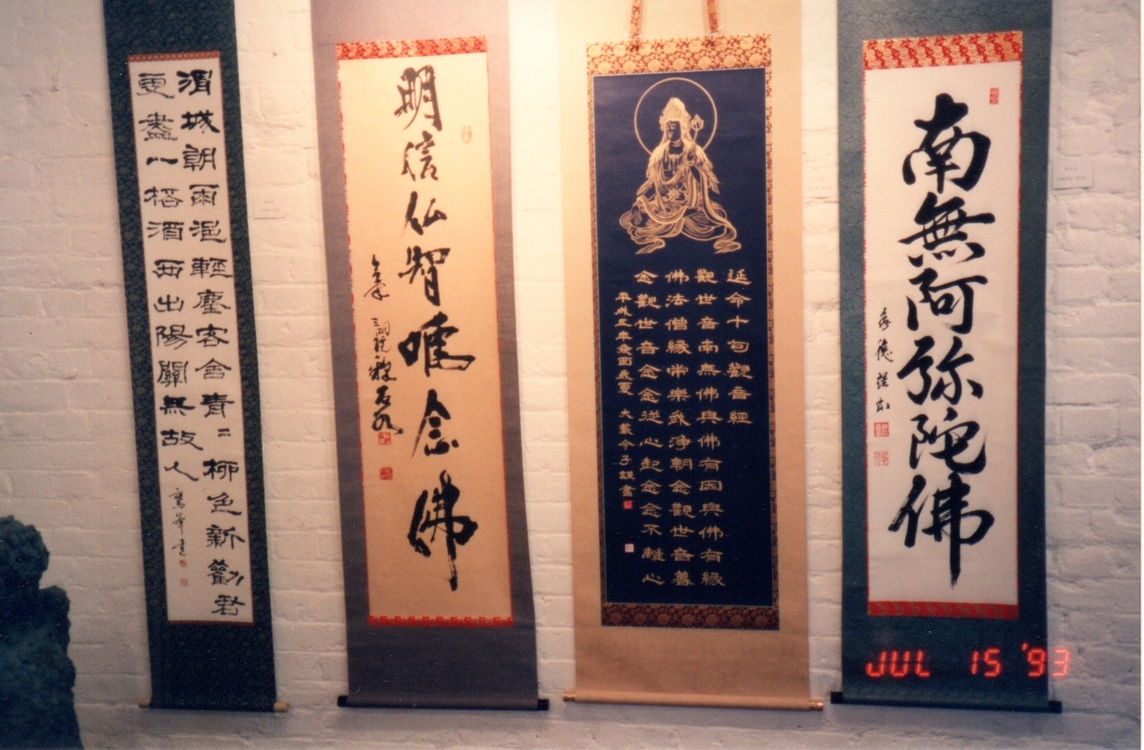 南無阿弥陀佛
延命十句觀音經
觀世音南無佛與佛有因與佛有緣
佛法僧緣常樂我淨朝念觀世音暮
念觀世音念念從心起念念不離心
平成五年癸酉 夏 謹書
明信仏智唯念佛
渭城朝雨浥輕塵客舍青〻柳色新勸君
更盡一桮酒西出陽關無故人
JUL 15 '93